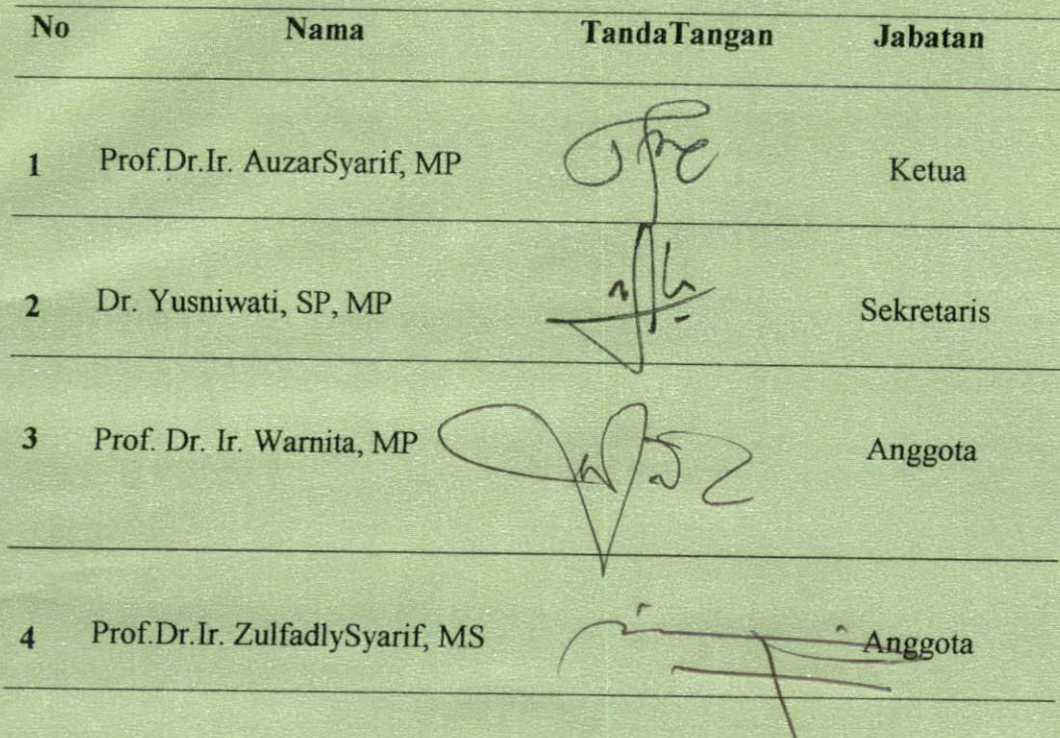 No Nama TandaTangan Jabatan
1 Prof.Dr.Ir. AuzarSyarif, MP Ketua
2 Dr. Yusniwati, SP, MP Sekretaris
3 Prof. Dr. Ir. Warnita, MP Anggota
4 Prof.Dr.Ir. ZulfadlySyarif, MS Anggota